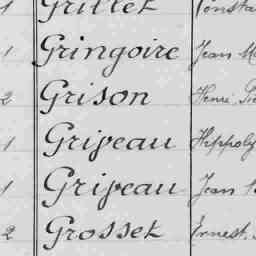 1 Grillet Consta
1 Gringoire Jean M
2 Grison Henri Pie
1 Griveau Hippoly
1 Griveau Jean
2 Grosset Ernest